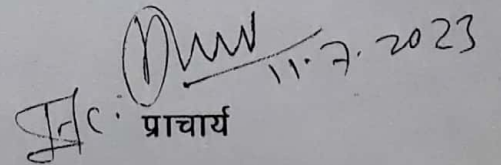 11.7.2023
I/c. प्राचार्य